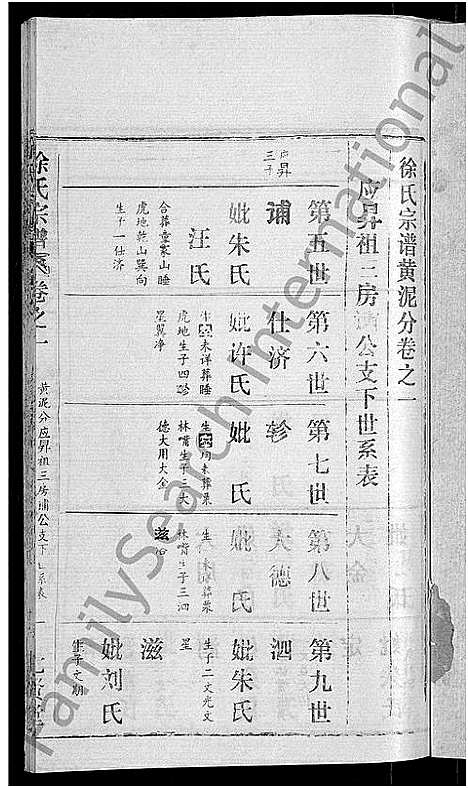 徐氏宗谱黄泥分卷之一
应昇祖三房浦公支下世系表
第五世
应昇
三子
浦
妣朱氏
汪氏
合葬童家山睡
虎地乾山巽向
生子一仕济
第六世
仕济
妣许氏
生殁未详葬睡
虎地生子四轸
星翼净
第七世
轸
妣 氏
生殁均未葬栗
林嘴生子三大
德大用大金
第八世
大德
妣 氏
生 未葬栗
林嘴生子三泗
滋治
第九世
泗
妣朱氏
生子二文光文
星
滋
妣刘氏
生子文朝
徐氏宗谱 卷之一
黄泥分应昇祖三房浦公支下世系表
FamilySearch International